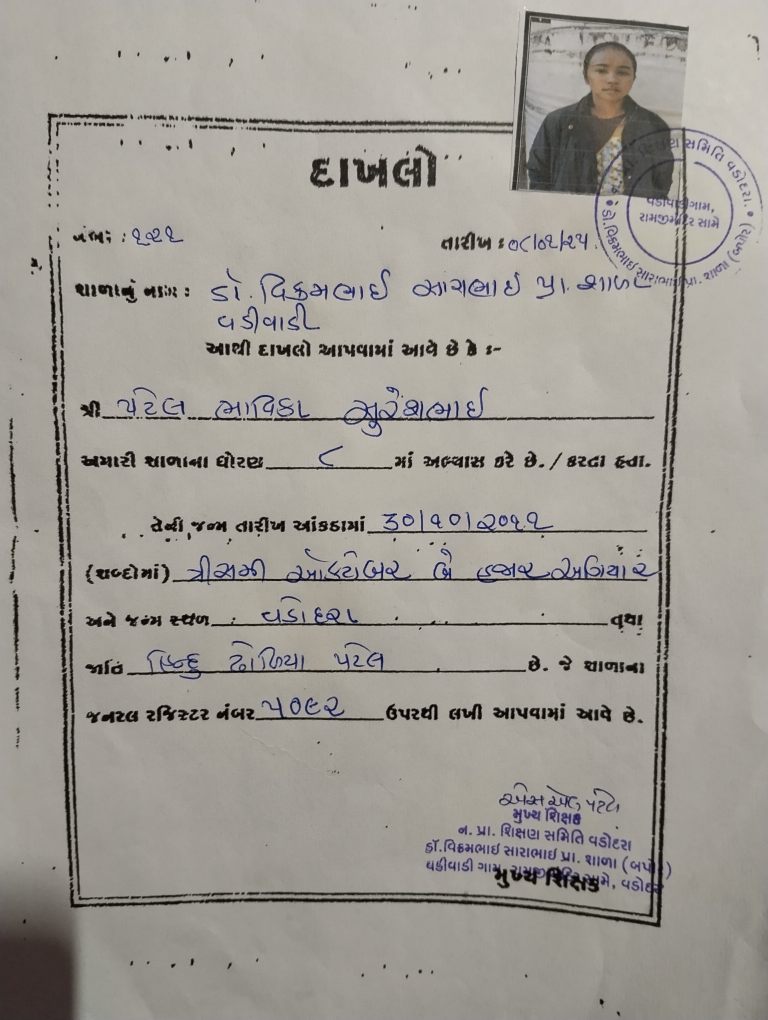 દાખલો
નંબર : ૧૨૧
તારીખ : ૦૮/૦૧/૨૫.
શાળાનું નામ : ડૉ. વિક્રમભાઈ સારાભાઈ પ્રા. શાળા
વડીવાડી
આથી દાખલો આપવામાં આવે છે કે :-
શ્રી પટેલ ભાવિકા સુરેશભાઈ
અમારી શાળાના ધોરણ ૮ માં અભ્યાસ કરે છે. / કરતા હતા.
તેની જન્મ તારીખ આંકડામાં ૩૦/૧૦/૨૦૧૧
(શબ્દોમાં) ત્રીસમી ઓક્ટોબર બે હજાર અગિયાર
અને જન્મ સ્થળ : વડોદરા તથા
જાતિ હિન્દુ ઢોળિયા પટેલ છે. જે શાળાના
જનરલ રજિસ્ટર નંબર ૫૦૯૨ ઉપરથી લખી આપવામાં આવે છે.
એસ એલ પટેલ
મુખ્ય શિક્ષક
ન. પ્રા. શિક્ષણ સમિતિ વડોદરા
ડૉ.વિક્રમભાઈ સારાભાઈ પ્રા. શાળા (બપોર)
વડીવાડી ગામ, રામજીમંદિર સામે, વડોદરા
મુખ્ય શિક્ષક
શિક્ષણ સમિતિ વડોદરા.
વડીવાડીગામ,
રામજીમંદિર સામે
ડૉ.વિક્રમભાઈ સારાભાઈ પ્રા. શાળા